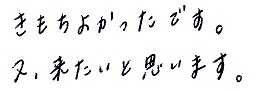 きもちよかったです。
又、来たいと思います。